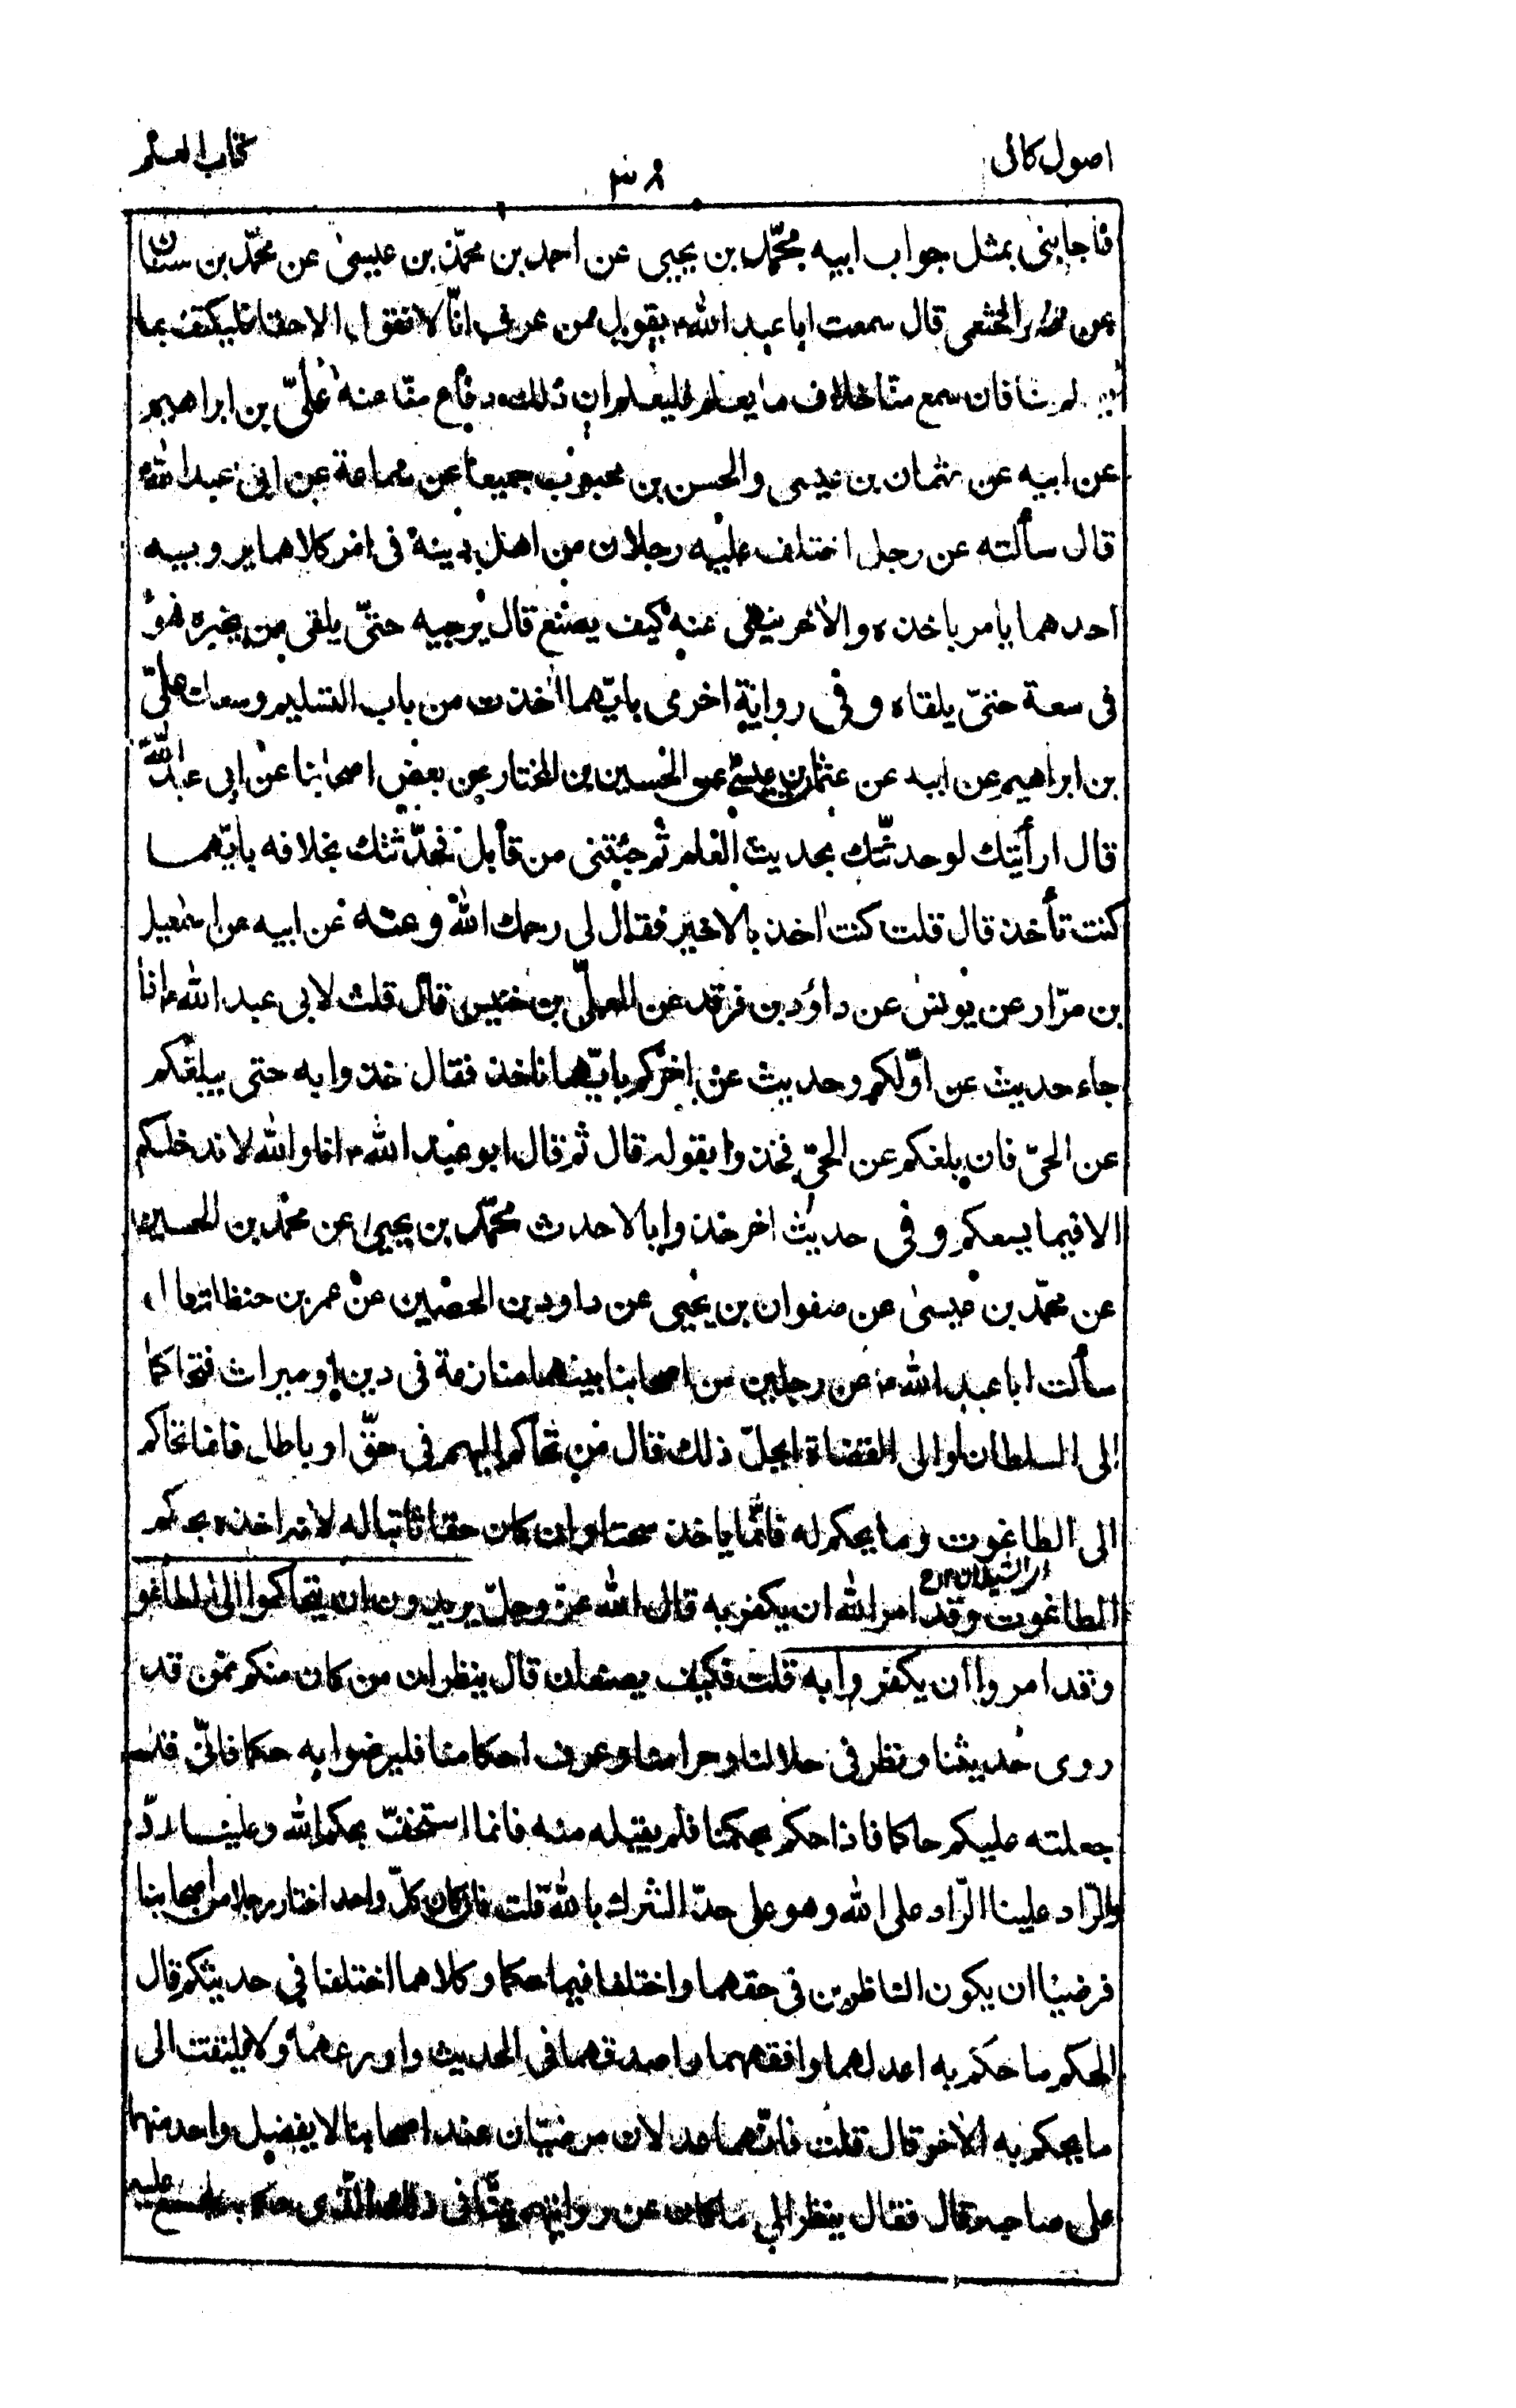 اصول کافی
۳۸
کتاب العلم
فاجابنی بمثل جواب ابیه محمّد بن یحیی عن احمد بن محمّد بن عیسیٰ عن محمّد بن سنان
عن نصر الخثعمی قال سمعت ابا عبد اللّٰه۴ یقول من عرف انّا لا نقول الا حقا فلیکتف بما
یعلم منا فان سمع منّا خلاف ما یعلم فلیعلم ان ذلك دفاع منّا عنه علیّ بن ابراهیم
عن ابیه عن عثمان بن عیسی والحسن بن محبوب جمیعا عن سماعة عن ابی عبد اللّٰه
قال سألته عن رجل اختلف علیه رجلان من اهل دینه فی امر کلاهما یرویه
احدهما یامر باخذه والاٰخر ینهی عنه کیف یصنع قال یرجیه حتّی یلقی من یخبره فهو
فی سعة حتیّ یلقاه و فی روایة اخری بایّهما اخذت من باب التسلیم وسعك علیّ
بن ابراهیم عن ابیه عن عثمان بن عیسیٰ عن الحسین بن المختار عن بعض اصحابنا عن ابی عبد اللّٰه
قال ارأیتك لو حدثّتك بحدیث العلم ثم جئتنی من قابل فحدّثتك بخلافه بایّهما
کنت تأخذ قال قلت کنت اٰخذ بالاخیر فقال لی رحمك اللّٰه وعنه عن ابیه عن اسمٰعیل
بن مرّار عن یونس عن داؤد بن فرقد عن المعلّی بن خنیس قال قلت لابی عبد اللّٰه۴ اذا
جاء حدیث عن اوّلکم وحدیث عن اٰخرکم بایّهما ناخذ فقال خذوا به حتی یبلغکم
عن الحیّ فان بلغکم عن الحیّ فخذوا بقوله قال ثم قال ابو عبد اللّٰه۴ انا واللّٰه لا ندخلکم
الا فیما یسعکم و فی حدیث اٰخر خذوا بالاحدث محمّد بن یحییٰ عن محمّد بن الحسین
عن محمّد بن عیسیٰ عن صفوان بن یحیی عن داود بن الحصین عن عمر بن حنظلة قال
سألت ابا عبد اللّٰه۴ عن رجلین من اصحابنا بینهما منازعة فی دین او میراث فتحاکما
الی السلطان او الی القضاة ایحلّ ذلك قال من تحاکم الیهم فی حقّ او باطل فانما تحاکم
الی الطاغوت وما یحکم له فانّما یاخذ سحتا وان کان حقا ثابتا له لانه اخذه بحکم
الطاغوت وقد امر اللّٰه ان یکفر به قال اللّٰه عزّ وجلّ یریدون ان یتحاکموا الی الطاغو
وقد امروا ان یکفروا به قلت فکیف یصنعان قال ینظران من کان منکم ممّن قد
روی حدیثنا ونظر فی حلالنا وحرامنا وعرف احکامنا فلیرضوا به حکما فانّی قد
جعلته علیکم حاکما فاذا حکم بحکمنا فلم یقبله منه فانما استخفّ بحکم اللّٰه وعلینا ردّ
والرّاد علینا الرّاد علی اللّٰه وهو علی حدّ الشرك باللّٰه قلت فان کان کلّ واحد اختار رجلا من اصحابنا
فرضیا ان یکون الناظرین فی حقهما واختلفا فیما حکما وکلاهما اختلفا فی حدیثکم قال
الحکم ما حکم به اعدلهما وافقههما واصدقهما فی الحدیث واورعهما ولا یلتفت الی
ما یحکم به الاٰخر قال قلت فانّهما عدلان مرضیّان عند اصحابنا لا یفضل واحد منهما
علی صاحبه قال فقال ینظر الی ما کان من روایتهم عنّا فی ذلك الّذی حکما به المجمع علیه